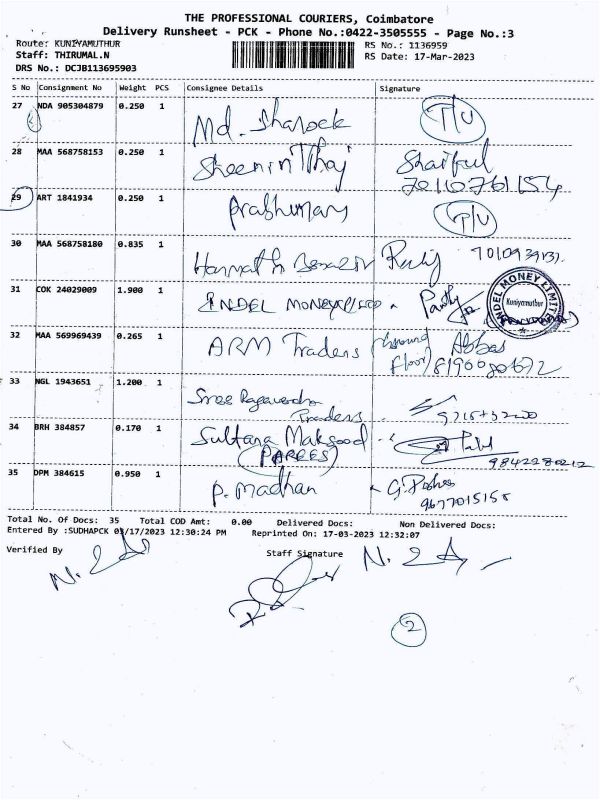 THE PROFESSIONAL COURIERS, Coimbatore
Delivery Runsheet - PCK - Phone No.:0422-3505555 - Page No.:3
Route: KUNIYAMUTHUR RS No.: 1136959
Staff: THIRUMAL.N RS Date: 17-Mar-2023
DRS No.: DCJB113695903
S No Consignment No Weight PCS Consignee Details Signature
27 NDA 905304879 0.250 1 Md. Sharook T/U
28 MAA 568758153 0.250 1
29 ART 1841934 0.250 1 T/U
30 MAA 568758180 0.835 1
31 COK 24029009 1.900 1 INDEL MONEY
INDEL MONEY LIMITED
Kuniyamuthur
32 MAA 569969439 0.265 1 ARM Traders Ground Abbas
floor
33 NGL 1943651 1.200 1 Sree Ragavendra
Traders
34 BRH 384857 0.170 1 Sultana Maksood
9842280212
35 DPM 384615 0.950 1 P. Madhan
9677015155
Total No. Of Docs: 35 Total COD Amt: 0.00 Delivered Docs: Non Delivered Docs:
Entered By :SUDHAPCK 03/17/2023 12:30:24 PM Reprinted On: 17-03-2023 12:32:07
Verified By Staff Signature
2